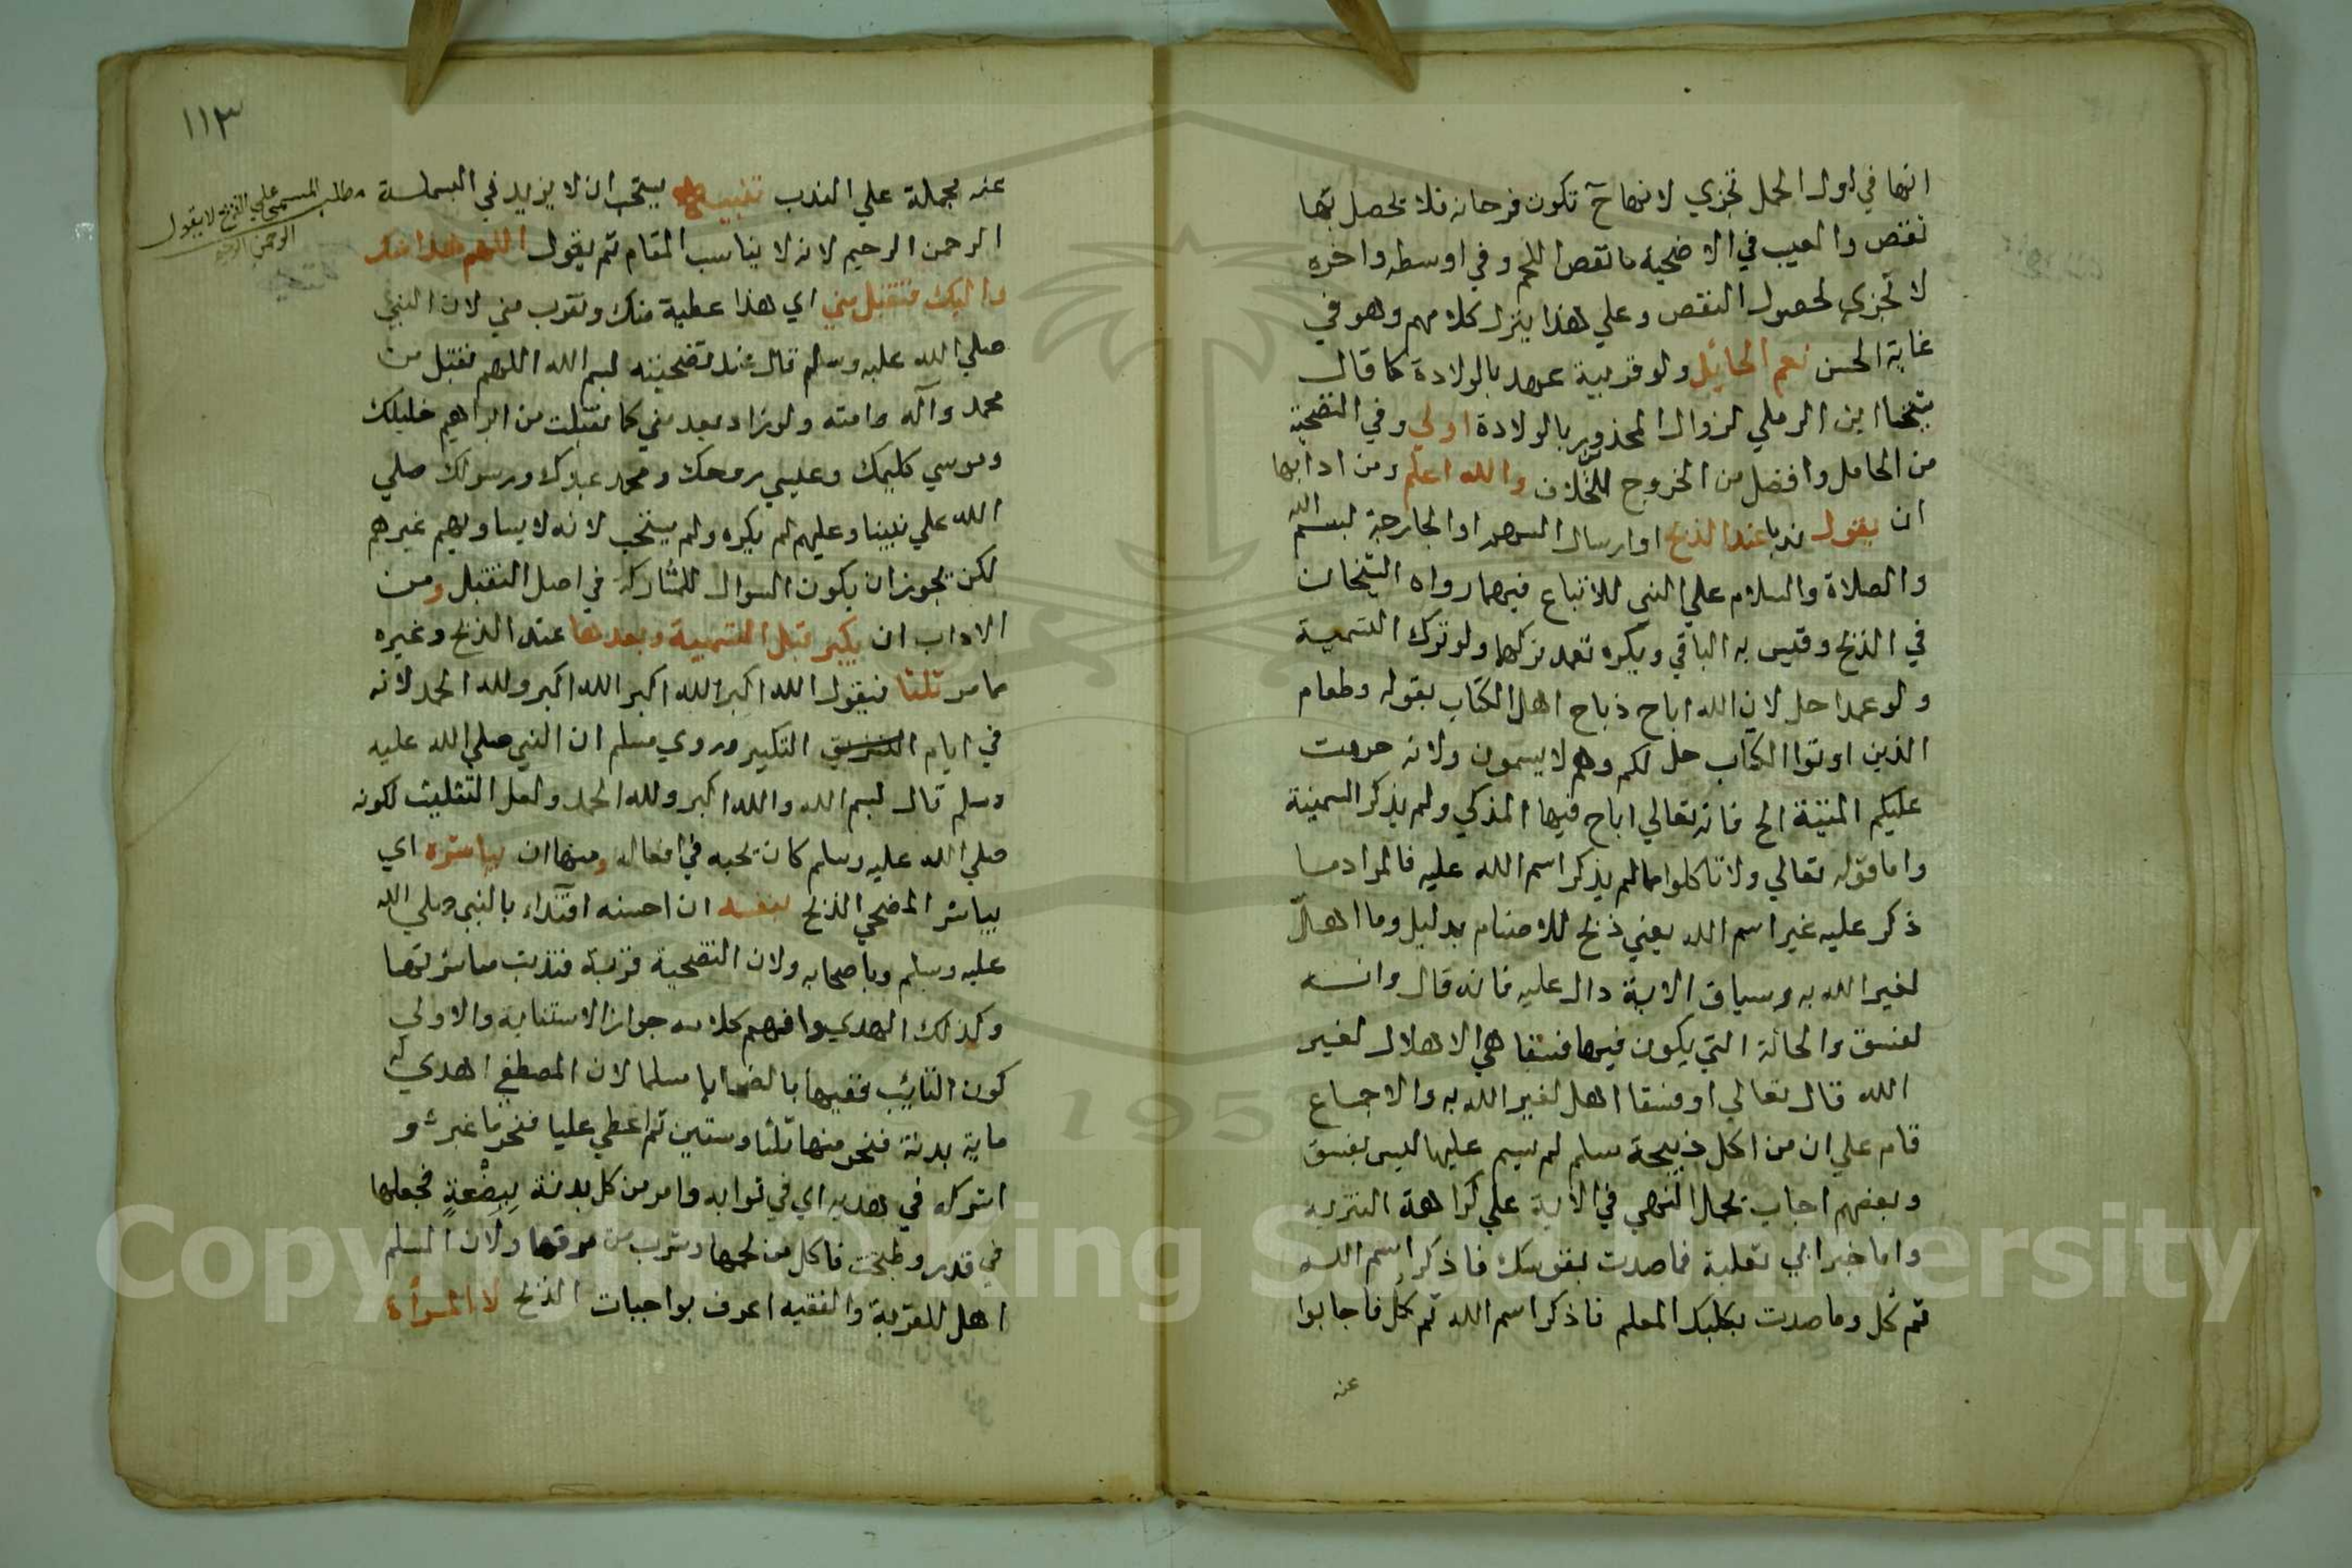 انها في اول الحمل تجزي لانها ح تكون فرحانه فلا يحصل بها
نقص والعيب في الاضحية ما نقص اللحم وفي اوسطه واخره
لا تجزي لحصول النقص وعلي هذا ينزل كلامهم وهو في
غاية الحسن نعم الحائل ولو قريبة عهد بالولادة كما قال
شيخنا ابن الرملي لزوال المحذور بالولادة اولي وفي التضحية
من الحامل وافضل من الخروج للخلاف والله اعلم ومن ادابها
ان يقول ندبا عند الذبح او ارسال السهم او الجارحة بسم الله
والصلاة والسلام علي النبي للاتباع فيهما رواه الشيخان
في الذبح وقيس به الباقي ويكره تعمد تركها ولو ترك التسمية
ولو عمدا حل لان الله اباح ذباح اهل الكتاب بقوله وطعام
الذين اوتوا الكتاب حل لكم وهم لا يسمون ولانه حرمت
عليكم الميتة الخ فانه تعالي اباح فيها المذكي ولم يذكر التسمية
واما قوله تعالي ولا تاكلوا مما لم يذكر اسم الله عليه فالمراد ما
ذكر عليه غير اسم الله يعني ذبح للاصنام بدليل وما اهل
لغير الله به وسياق الاية دال عليه فانه قال وانه
لفسق والحالة التي يكون فيها فسقا هي الاهلال لغير
الله قال تعالي او فسقا اهل لغير الله به والاجماع
قام علي ان من اكل ذبيحة مسلم لم يسم عليها ليس بفسق
وبعضهم اجاب بحمل النهي في الاية علي كراهة التنزيه
واما خبر ابي ثعلبة فما صدت بقوسك فاذكر اسم الله
ثم كل وما صدت بكلبك المعلم فاذكر اسم الله ثم كل فاجابوا
عنه
١١٣
عنه بحملة علي الندب تنبيه يستحب ان لا يزيد في البسملة
الرحمن الرحيم لانه لا يناسب المقام ثم يقول اللهم هذا منك
واليك فتقبل مني اي هذا عطية منك وتقرب مني لان النبي
صلي الله عليه وسلم قال عند تضحيته بسم الله اللهم تقبل من
محمد وآله وامته ولو زاد بعد مني كما تقبلت من ابراهيم خليلك
وموسي كليمك وعيسي روحك ومحمد عبدك ورسولك صلي
الله علي نبينا وعليهم لم يكره ولم يستحب لانه لا يساويهم غيرهم
لكن يجوز ان يكون السوال للمشاركة في اصل التقبل ومن
الاداب ان يكبر قبل التسمية وبعدها عند الذبح وغيره
مما مر ثلثا فيقول الله اكبر الله اكبر الله اكبر ولله الحمد لانه
في ايام التشريق التكبير وروي مسلم ان النبي صلي الله عليه
وسلم قال بسم الله والله اكبر ولله الحمد ولعل التثليث لكونه
صلي الله عليه وسلم كان يحبه في افعاله ومنها ان يباشره اي
يباشر المضحي الذبح بنفسه ان احسنه اقتداء بالنبي صلي الله
عليه وسلم وباصحابه ولان التضحية قربة فندبت مباشرتها
وكذلك الهدي وافهم كلامه جواز الاستنابة والاولي
كون النائب فقيها بالضحايا مسلما لان المصطفي اهدي له
ماية بدنة فنحر منها ثلثا وستين ثم اعطي عليا فنحر ما غبر و
اشركه في هديه اي في ثوابه وامر من كل بدنة ببضعة فجعلها
في قدر وطبخت فاكل من لحمها وشرب من مرقها ولان المسلم
اهل للقربة والفقيه اعرف بواجبات الذبح لا المرأة
مطلب المسمي علي الذبح لا يقول
الرحمن الرحيم
Copyright © King Saud University
195